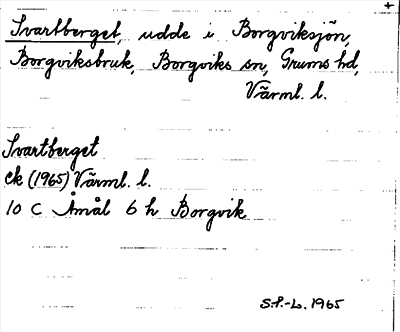 Svartberget, udde i Borgviksjön,
Borgviksbruk, Borgviks sn, Grums hd,
Värml. l.
Svartberget
ek (1965) Värml. l.
10 C Åmål 6 h Borgvik
S.P.-L. 1965